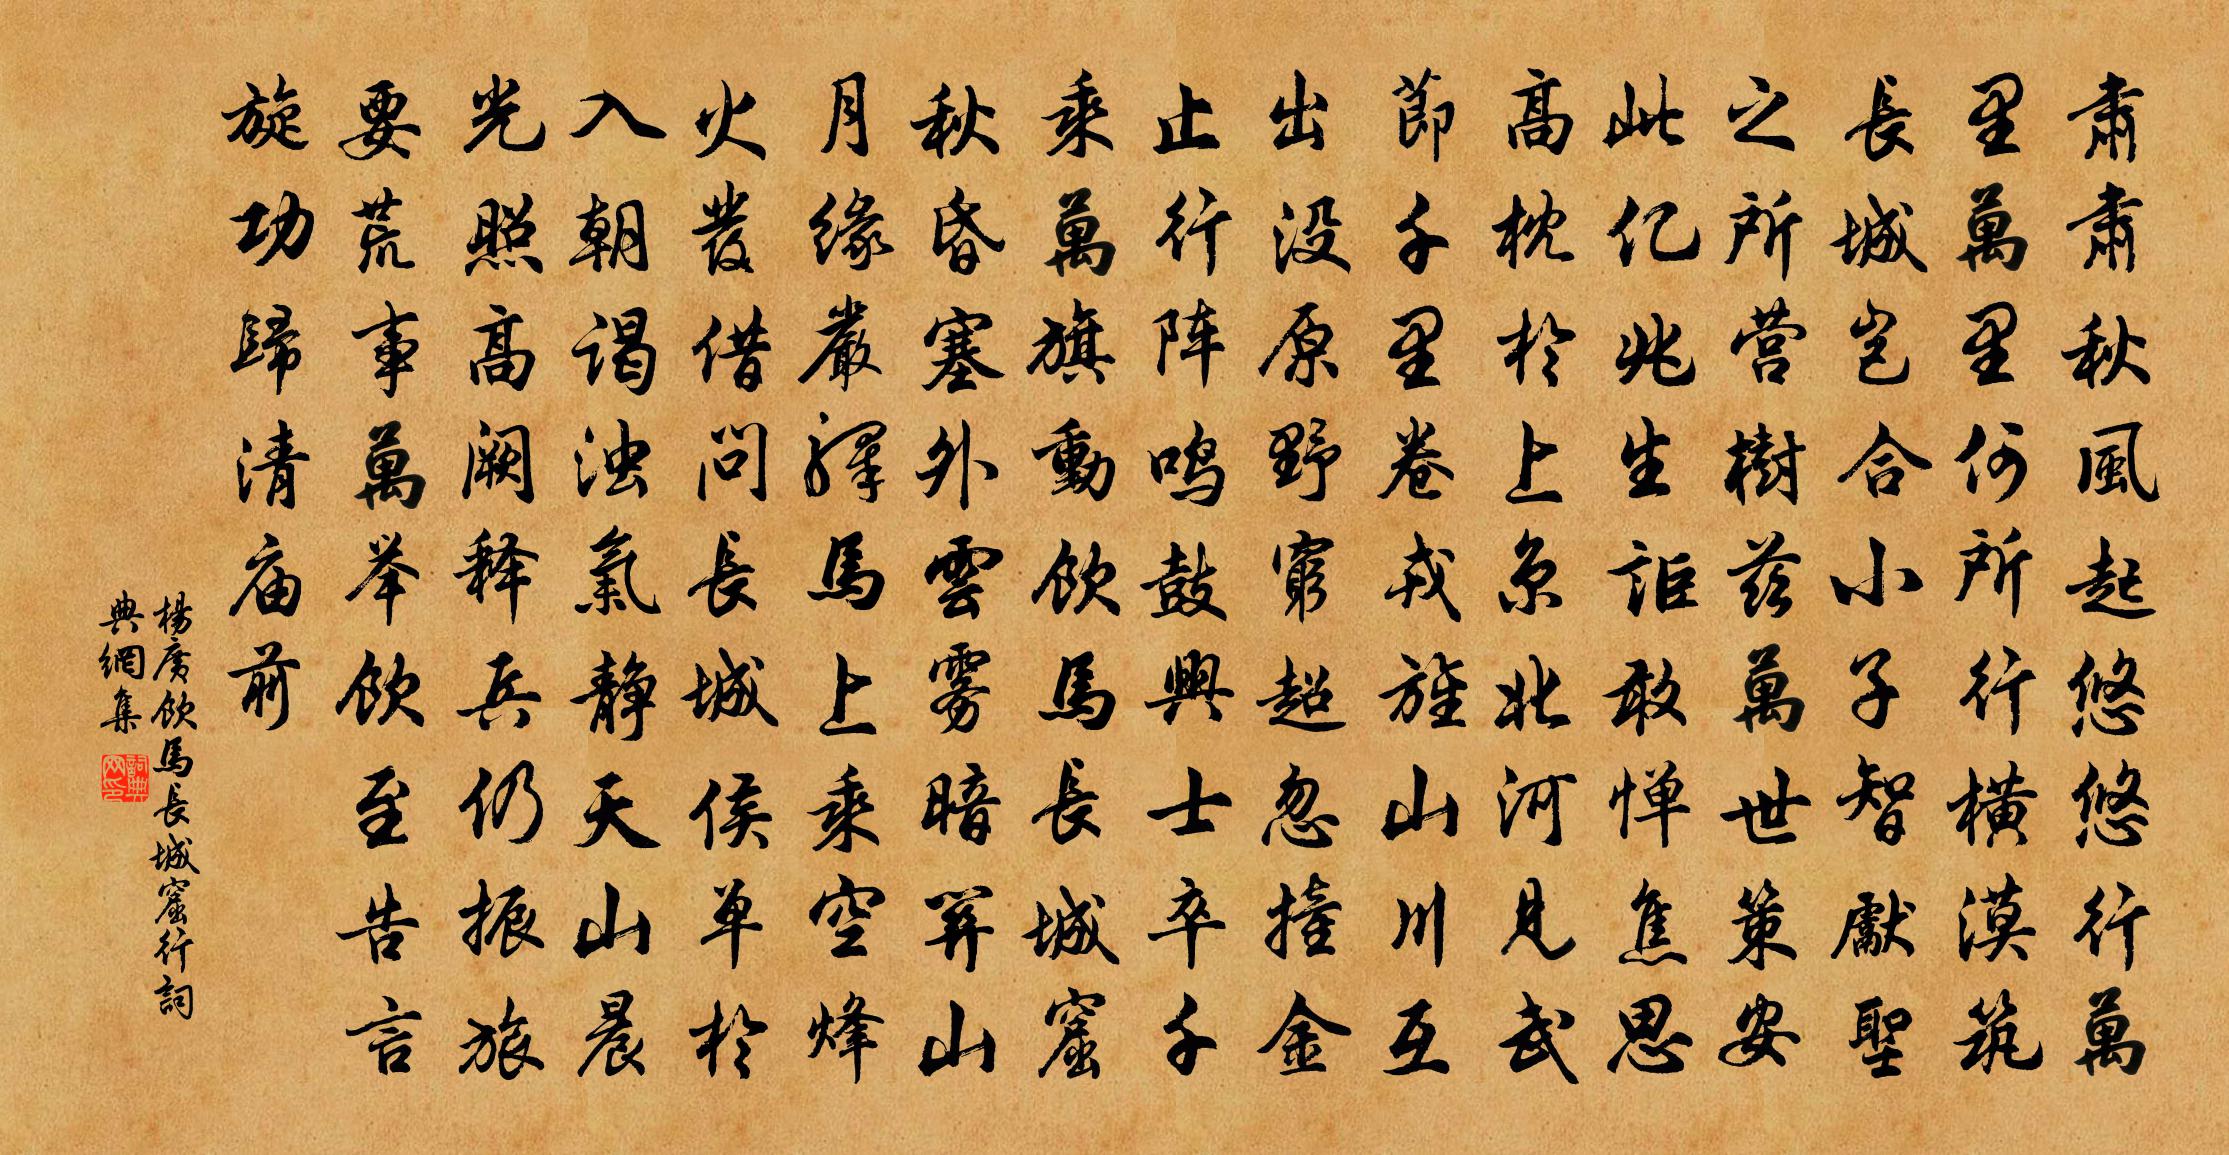 肅肅秋風起悠悠行萬
里萬里何所行横漠筑
長城岂合小子智獻聖
之所营樹兹萬世策安
此亿兆生詎敢惮焦思
高枕於上京北河見武
節千里卷戎旌山川互
出没原野窮超忽撞金
止行阵鸣鼓興士卒千
乘萬旗動飲馬長城窟
秋昏塞外雲雾暗關山
月缘嚴驛馬上乘空烽
火發借問長城侯单於
入朝謁浊氣静天山晨
光照高阙释兵仍振旅
要荒事萬举飲至告言
旋功歸清庙前
楊廣飲馬長城窟行詞
典網集
詞典网印